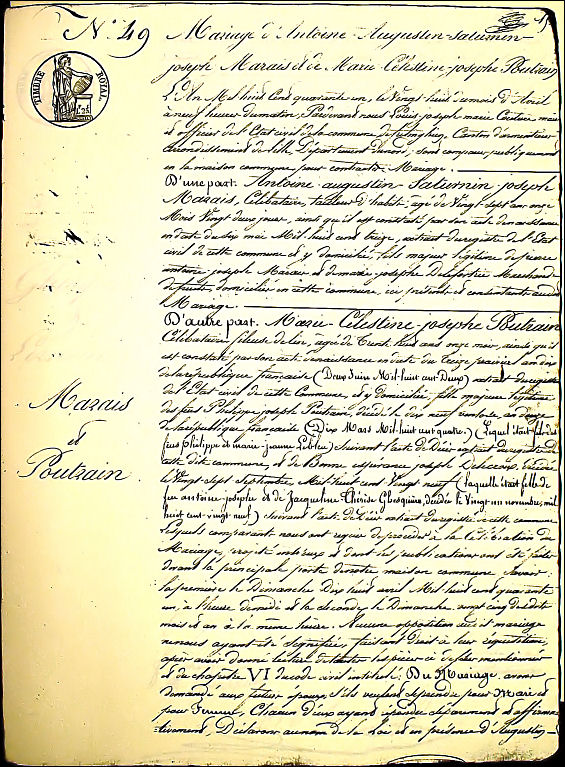 N.º 49
Mariage d'Antoine-Augustin-Saturnin-
joseph Marais et de Marie-Célestine-joseph Poutrain
TIMBRE ROYAL
L'An Mil huit Cent quarante un, le Vingt huit du mois d'Avril
à neuf heures du matin, Pardevant nous Louis joseph marie Cordier, maire
et officier de l'Etat civil de la commune de Canton d'armentières
arrondissement de Lille, Département du nord, sont comparus publiquement
en la maison commune, pour contracter Mariage.
D'une part. Antoine-augustin-Saturnin-joseph
Marais, Célibataire, tailleur d'habits, agé de Vingt sept ans onze
Mois Vingt deux jours, ainsi qu'il est constaté par son acte de naissance
en date du six mai Mil huit cent treize, extrait du registre de l'Etat
civil de cette commune et y domicilié, fils majeur légitime de pierre
antoine joseph Marais et de marie josephe Delaforterie Marchand
domiciliés en cette commune, ici présents et consentants audit
Mariage.
D'autre part. Marie-Célestine-joseph Poutrain
Célibataire fileuse de lin, agée de Trente huit ans onze mois, ainsi qu'il
est constaté par son acte de naissance en date du Treize prairial an dix
de la république française (Deux Juin Mil-huit-cent-Deux) extrait du registre
de l'Etat civil de cette Commune, et y domiciliée, fille majeure légitime
des feus Philippe joseph Poutrain, décédé le dix neuf ventose, an douze
de la république française (Dix Mars Mil-huit-cent-quatre.) (Lequel était fils des
feus philippe et marie-jeanne Lebleu) suivant l'acte de Décès extrait du registre de
cette dite commune, et de Bonne espérance joseph Delecroix, décédée
le Vingt Sept Septembre Mil-huit-cent Vingt neuf (laquelle était fille de
feu antoine-josephe et de Jacqueline Thérèse Ghesquière, décédée le Vingt-un novembre, mil
huit-cent-vingt-neuf) suivant l'acte de Décès extrait du registre de cette commune
Lesquels comparants nous ont requis de procéder à la Célébration du
Mariage, projeté entre eux et dont les publications ont été faites
devant la principale porte de notre maison commune Savoir:
la première le Dimanche Dix huit avril Mil-huit-cent quarante
un, à l'heure de midi et la seconde, le Dimanche, vingt cinq dudit
mois et an à la même heure. Aucune opposition audit mariage
ne nous ayant été signifiée, faisant droit à leur réquisition,
après avoir donné lecture de toutes les pièces ci dessus mentionnées
et du chapitre VI du code civil intitulé: Du Mariage, avons
demandé aux futurs époux, s'ils veulent se prendre pour Mari et
pour Femme, Chacun d'eux ayant répondu séparément et affirma-
tivement, Déclarons au nom de la Loi et en présence d'Augustin-
Marais
et
Poutrain